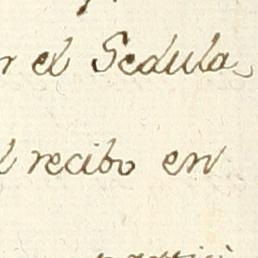 r el Sedula,
l recibo en